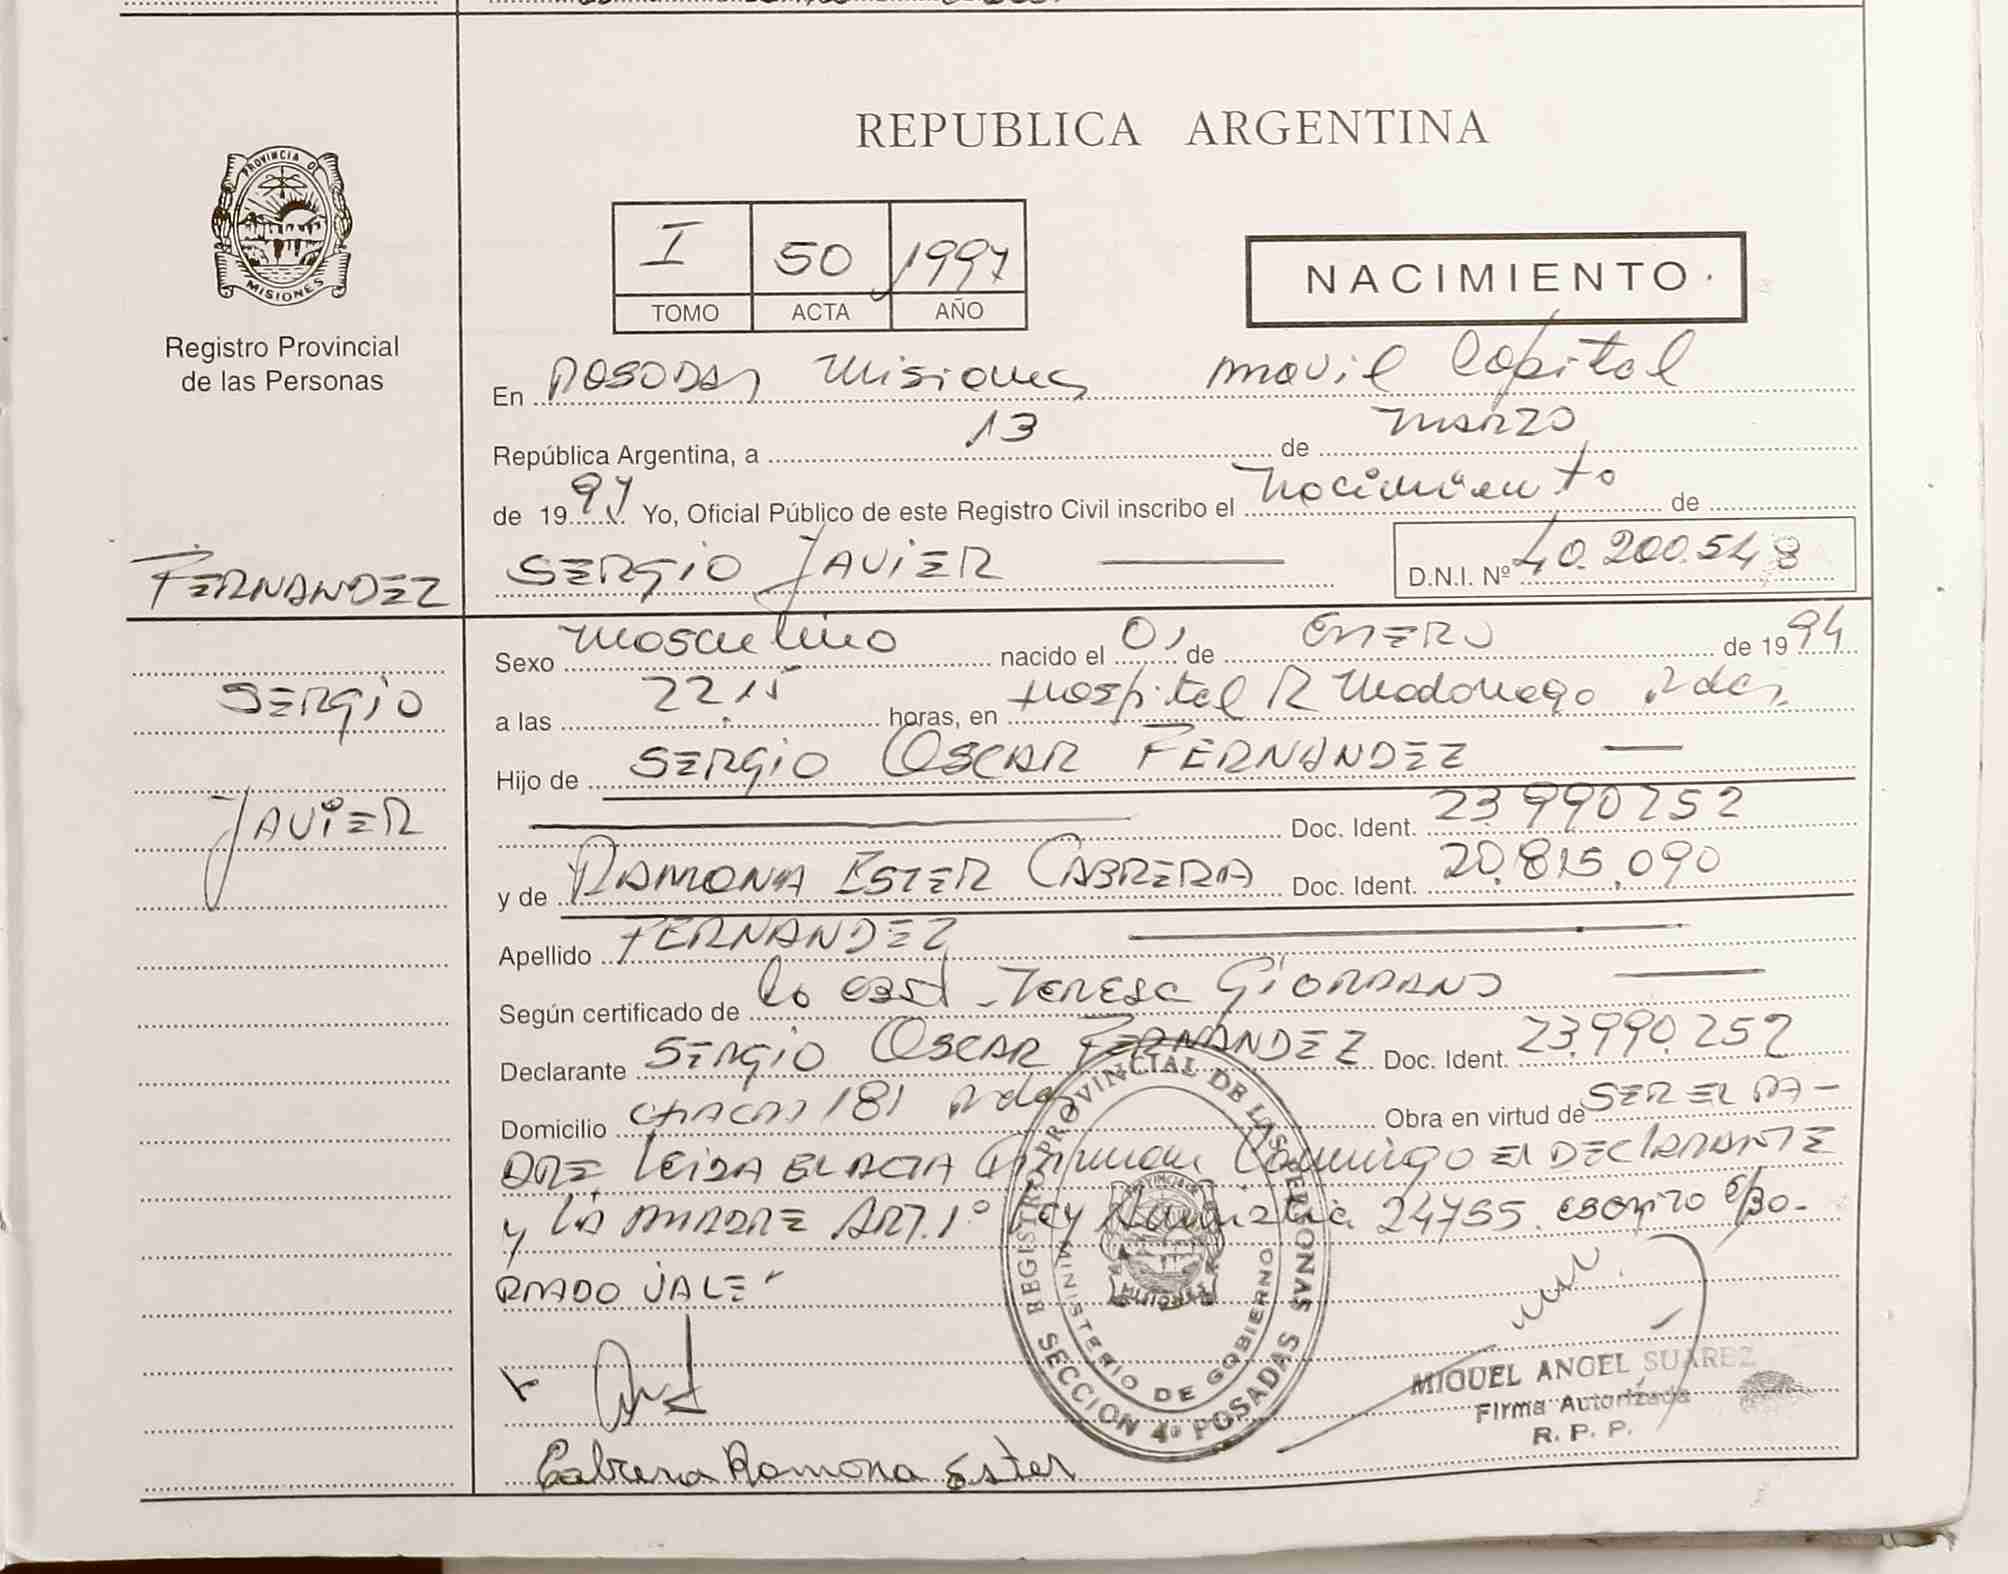 REPUBLICA ARGENTINA
PROVINCIA DE
MISIONES
Registro Provincial
de las Personas
I 50 1997
TOMO ACTA AÑO
NACIMIENTO
En POSADAS Misiones movil Capital
República Argentina, a 13 de marzo
de 1997 Yo, Oficial Público de este Registro Civil inscribo el nacimiento de
FERNANDEZ SERGIO JAVIER D.N.I. Nº 40.200.548
Sexo masculino nacido el 01 de ENERO de 1994
SERGIO
a las 22 15 horas, en Hospital R Madariaga Pdas
Hijo de SERGIO OSCAR FERNANDEZ
JAVIER
Doc. Ident. 23.990252
y de RAMONA ESTER CABRERA Doc. Ident. 20.815.090
Apellido FERNANDEZ
Según certificado de la obst. TERESA GIORDANO
Declarante SERGIO OSCAR FERNANDEZ Doc. Ident. 23.990.252
Domicilio CHACO 181 Pdas Obra en virtud de SER EL PA-
DRE LEIDA EL ACTA firman conmigo El DECLARANTE
y LA MADRE ART. 1º Ley 24755. escrito s/Bo-
RRADO VALE
REGISTRO PROVINCIAL DE LAS PERSONAS
MINISTERIO DE GOBIERNO
SECCION 4ª POSADAS
MIGUEL ANGEL SUAREZ
Firma Autorizada
R. P. P.
Cabrera Ramona Ester